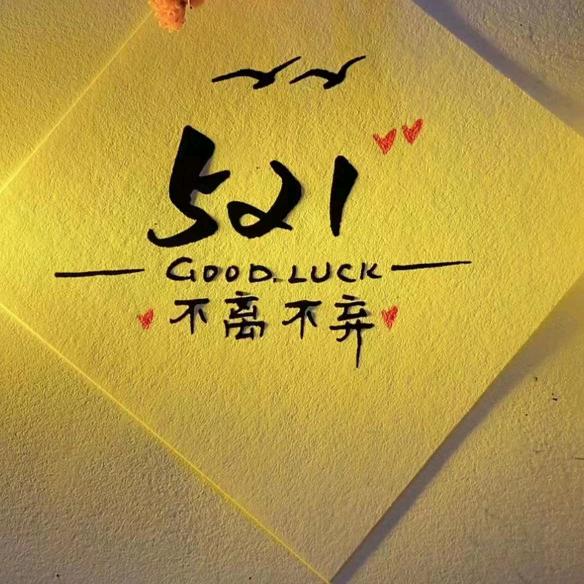 521
GOOD.LUCK
不离不弃